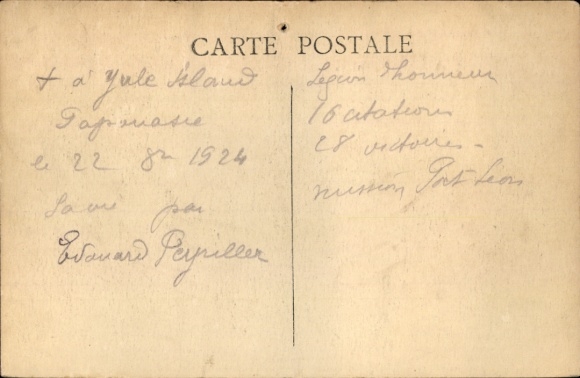 CARTE POSTALE
+ à Yule Island
Papouasie
le 22 8bre 1924
Sa vie par
Edouard Peyriller
Légion d'honneur
16 citations
28 victoires -
mission Port Léon